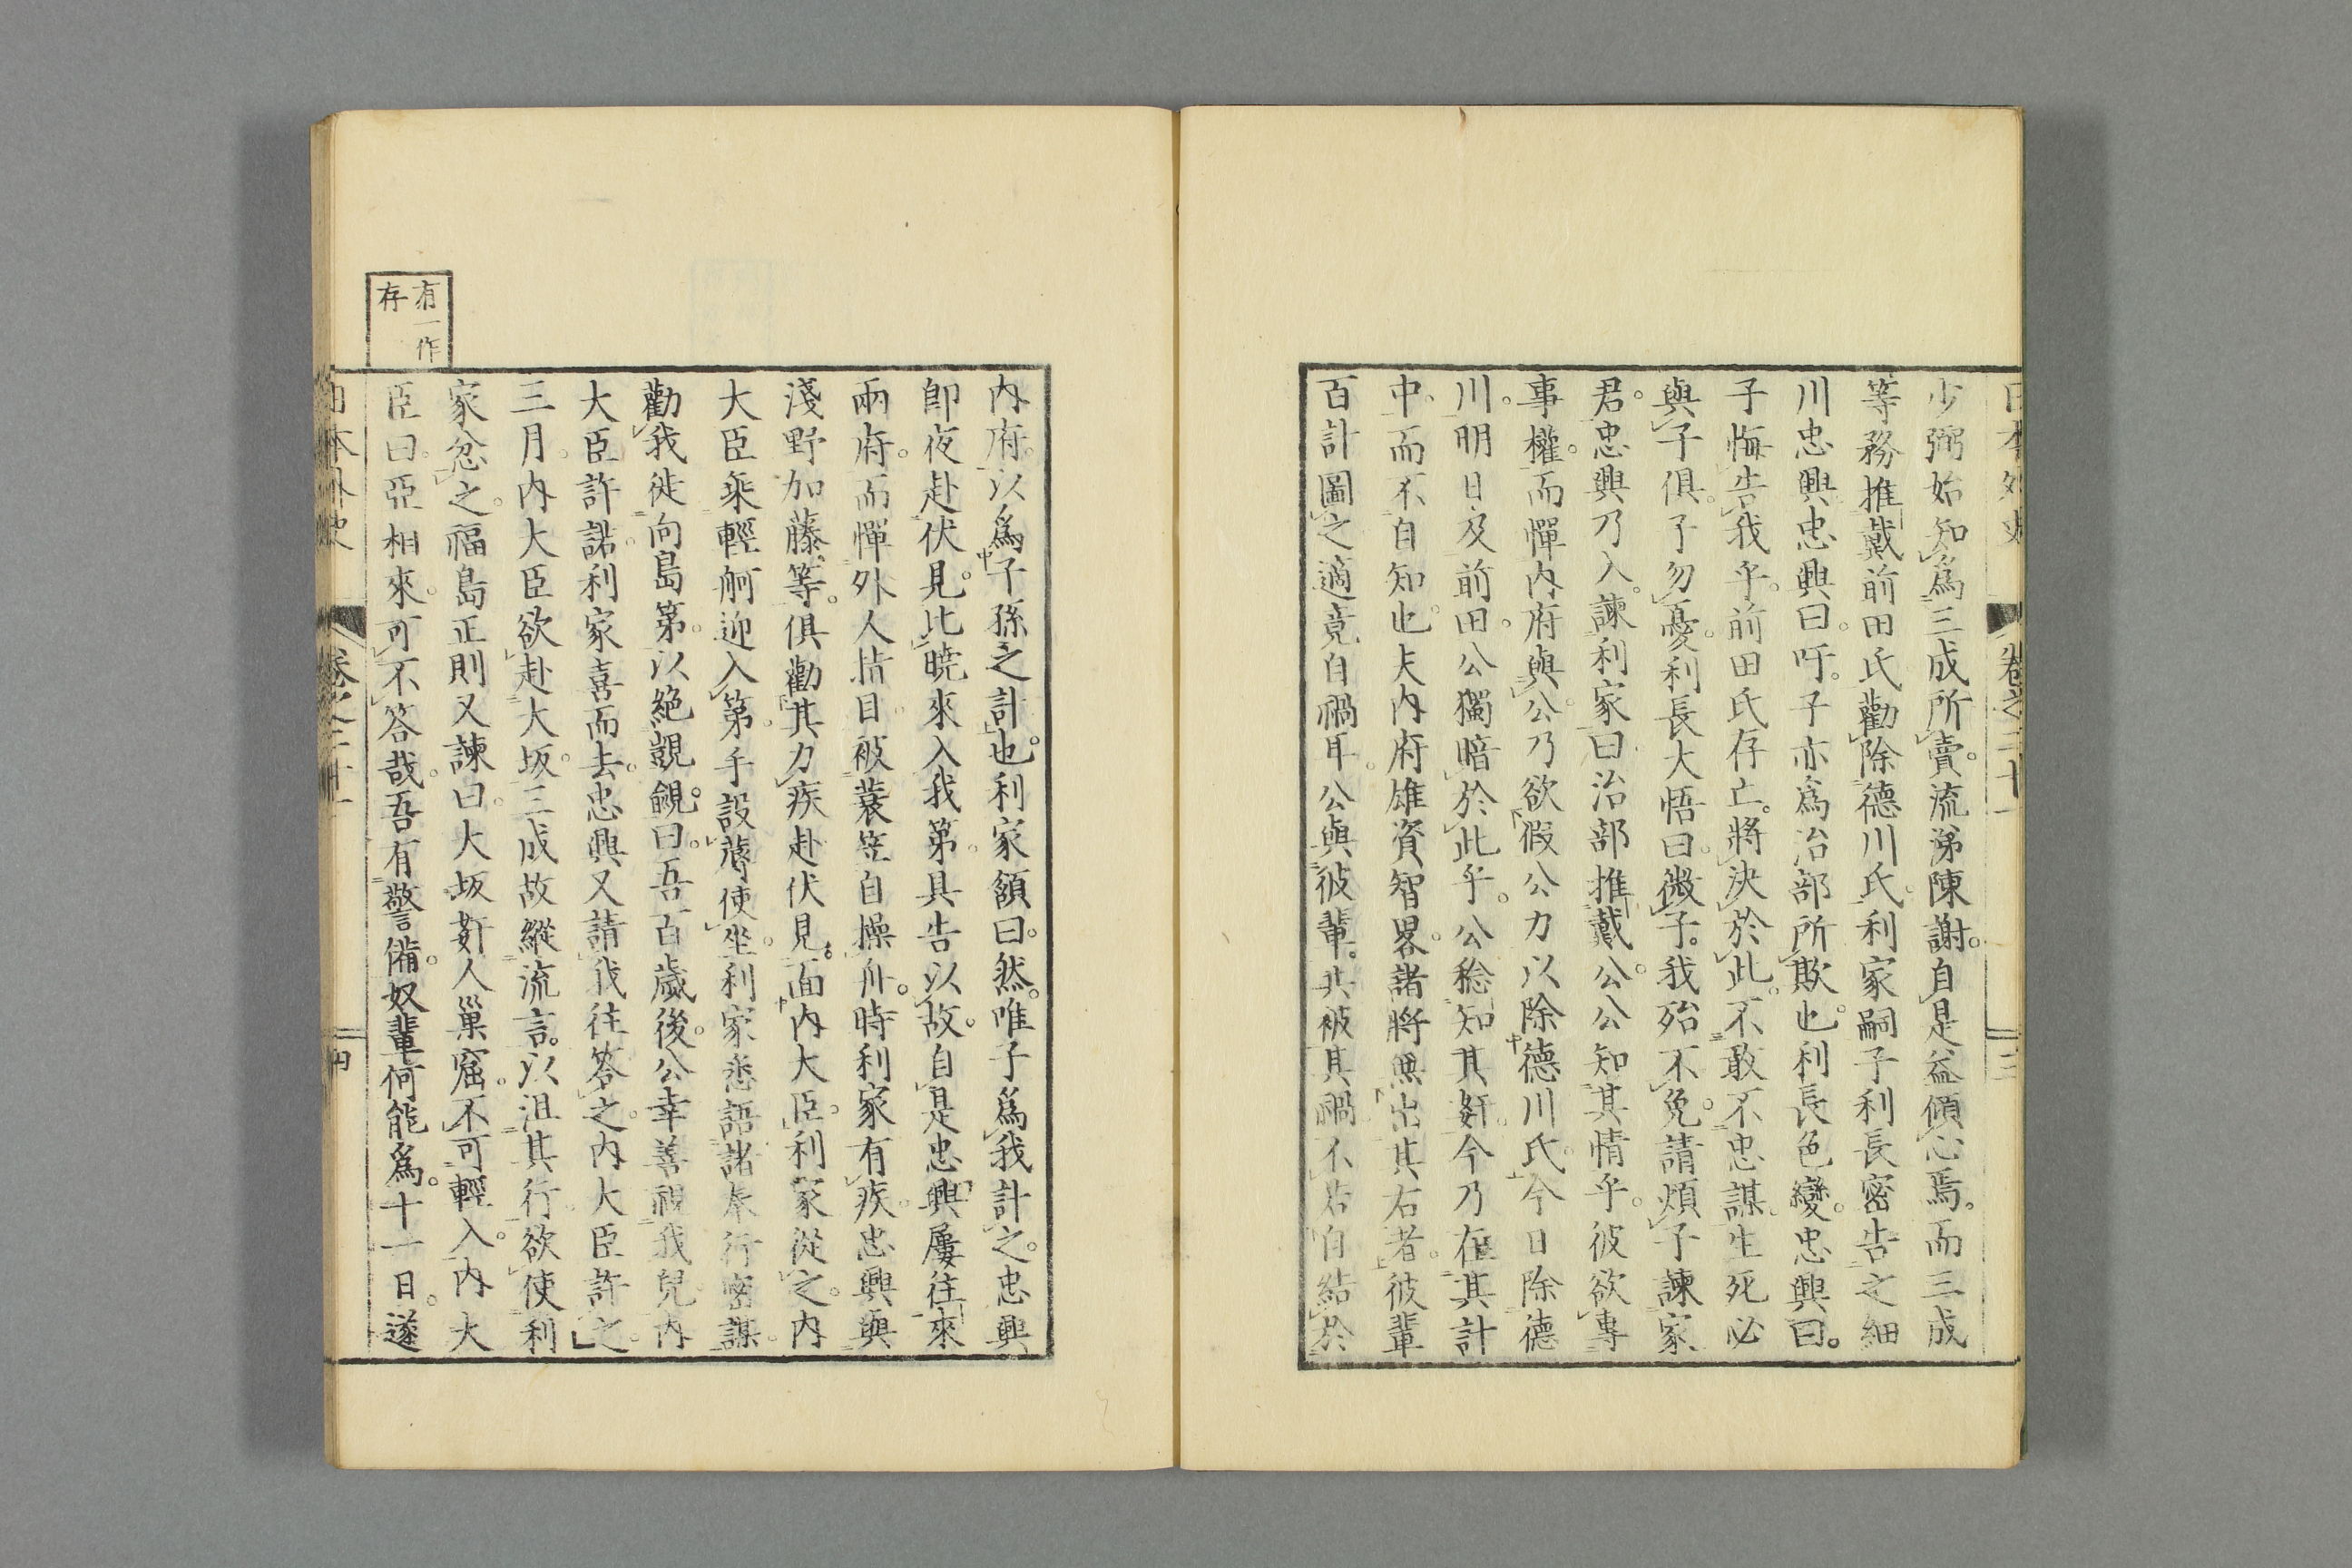 日本外史 卷之二十一 三
少弼始知爲三成所賣。流涕陳謝。自是益傾心焉。而三成
等務推戴前田氏勸除德川氏。利家嗣子利長密告之細
川忠興忠興曰。吁。子亦爲治部所欺也。利長色變。忠興曰。
子悔告我乎。前田氏存亡。將決於此。不敢不忠謀。生死必
與子俱。子勿憂。利長大悟曰。微子。我殆不免。請煩子諫家
君。忠興乃入。諫利家曰治部推戴公。公知其情乎。彼欲專
事權。而憚內府與公。乃欲假公力以除德川氏。今日除德
川。明日及前田。公獨暗於此乎。公稔知其姧。今乃在其計
中。而不自知也。夫內府雄資智畧。諸將無出其右者。彼輩
百計圖之適竟自禍耳。公與彼輩。共被其禍不若自結於
內府。以爲子孫之計也。利家頷曰。然。唯子爲我計之。忠興
卽夜赴伏見。比曉來入我第。具告以故。自是忠興屢往來
兩府。而憚外人指目。被蓑笠自操舟。時利家有疾。忠興與
淺野加藤等。俱勸其力疾赴伏見。面內大臣。利家從之。內
大臣乘輕舸迎入第。手設蓐使坐。利家悉語諸奉行密謀。
勸我徙向島第。以絕覬覦。曰。吾百歲後。公幸善視我兒。內
大臣許諾。利家喜而去。忠興又請我往答之。內大臣許之。
三月。內大臣欲赴大坂。三成故縱流言。以沮其行欲使利
家忿之。福島正則又諫曰。大坂姧人巢窟。不可輕入。內大
臣曰。亞相來。可不答哉。吾有警備。奴輩何能爲。十一日。遂
有一作
存
日本外史 卷之二十一 四